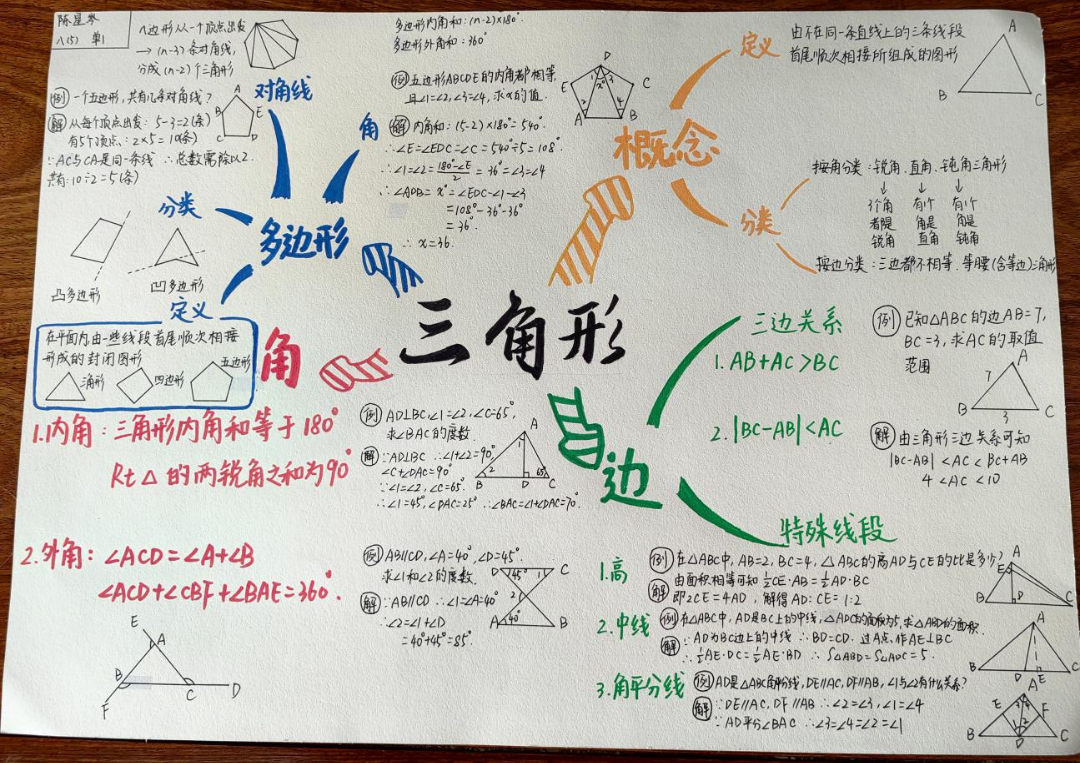 陈星孜
八(5) 单1
n边形从一个顶点出发
→ (n-3)条对角线,
分成(n-2)个三角形
例 一个五边形,共有几条对角线?
解 从每个顶点出发: 5-3=2(条)
有5个顶点: 2×5=10(条)
∵AC与CA是同一条线 ∴总数需除以2.
共有:10÷2=5(条)
A
B
E
C
D
对角线
角
分类
多边形
凸多边形
凹多边形
定义
在平面内由一些线段首尾顺次相接
形成的封闭图形
三角形
四边形
五边形
多边形内角和:(n-2)×180°
多边形外角和:360°
例 五边形ABCDE的内角都相等
且∠1=∠2,∠3=∠4,求x的值.
解 内角和:(5-2)×180°=540°
∴∠E=∠EDC=∠C=540°÷5=108°
∴∠1=∠2=(180°-∠E)/2=36°=∠3=∠4
∴∠ADB=x°=∠EDC-∠1-∠3
=108°-36°-36°
=36°
∴ x=36.
D
E
C
1 x° 3
2
4
A
B
概念
定义
由不在同一条直线上的三条线段
首尾顺次相接所组成的图形
A
B
C
分类
按角分类:锐角、直角、钝角三角形
↓ ↓ ↓
3个角 有1个 有1个
都是 角是 角是
锐角 直角 钝角
按边分类:三边都不相等、等腰(含等边)三角形
三角形
角
1.内角:三角形内角和等于180°
Rt△的两锐角之和为90°
2.外角:∠ACD=∠A+∠B
∠ACD+∠CBF+∠BAE=360°.
E
A
B
C
D
F
例 AD⊥BC,∠1=∠2,∠C=65°,
求∠BAC的度数.
解 ∵AD⊥BC ∴∠1+∠2=90°
∠C+∠DAC=90°
∵∠1=∠2,∠C=65°.
∴∠1=45°,∠DAC=25° ∴∠BAC=∠1+∠DAC=70°
A
1
2
65°
B
D
C
例 AB∥CD,∠A=40°,∠D=45°.
求∠1和∠2的度数.
解 ∵AB∥CD ∴∠1=∠A=40°
∴∠2=∠1+∠D
=40°+45°=85°.
D
C
45°
1
2
A
40°
B
边
三边关系
1.AB+AC>BC
2.|BC-AB|<AC
例 已知△ABC的边AB=7,
BC=3,求AC的取值
范围
A
7
B
3
C
解 由三角形三边关系可知
|BC-AB|<AC<BC+AB
4<AC<10
特殊线段
1.高
例 在△ABC中,AB=2,BC=4,△ABC的高AD与CE的比是多少?
解 由面积相等可知 ½CE·AB=½AD·BC
即2CE=4AD,解得AD:CE=1:2
A
E
B
D
C
2.中线
例 在△ABC中,AD是BC上的中线,△ADC的面积为5,求△ABD的面积.
解 ∵AD为BC边上的中线 ∴BD=CD. 过A点,作AE⊥BC
∴½AE·DC=½AE·BD ∴S△ABD=S△ADC=5.
A
B
D
E
C
3.角平分线
例 AD是△ABC角平分线,DE∥AC,DF∥AB,∠1与∠2有什么关系?
解 ∵DE∥AC,DF∥AB ∴∠2=∠3,∠1=∠4
∵AD平分∠BAC ∴∠3=∠4=∠2=∠1
A
3 4
E
F
1 2
B
D
C